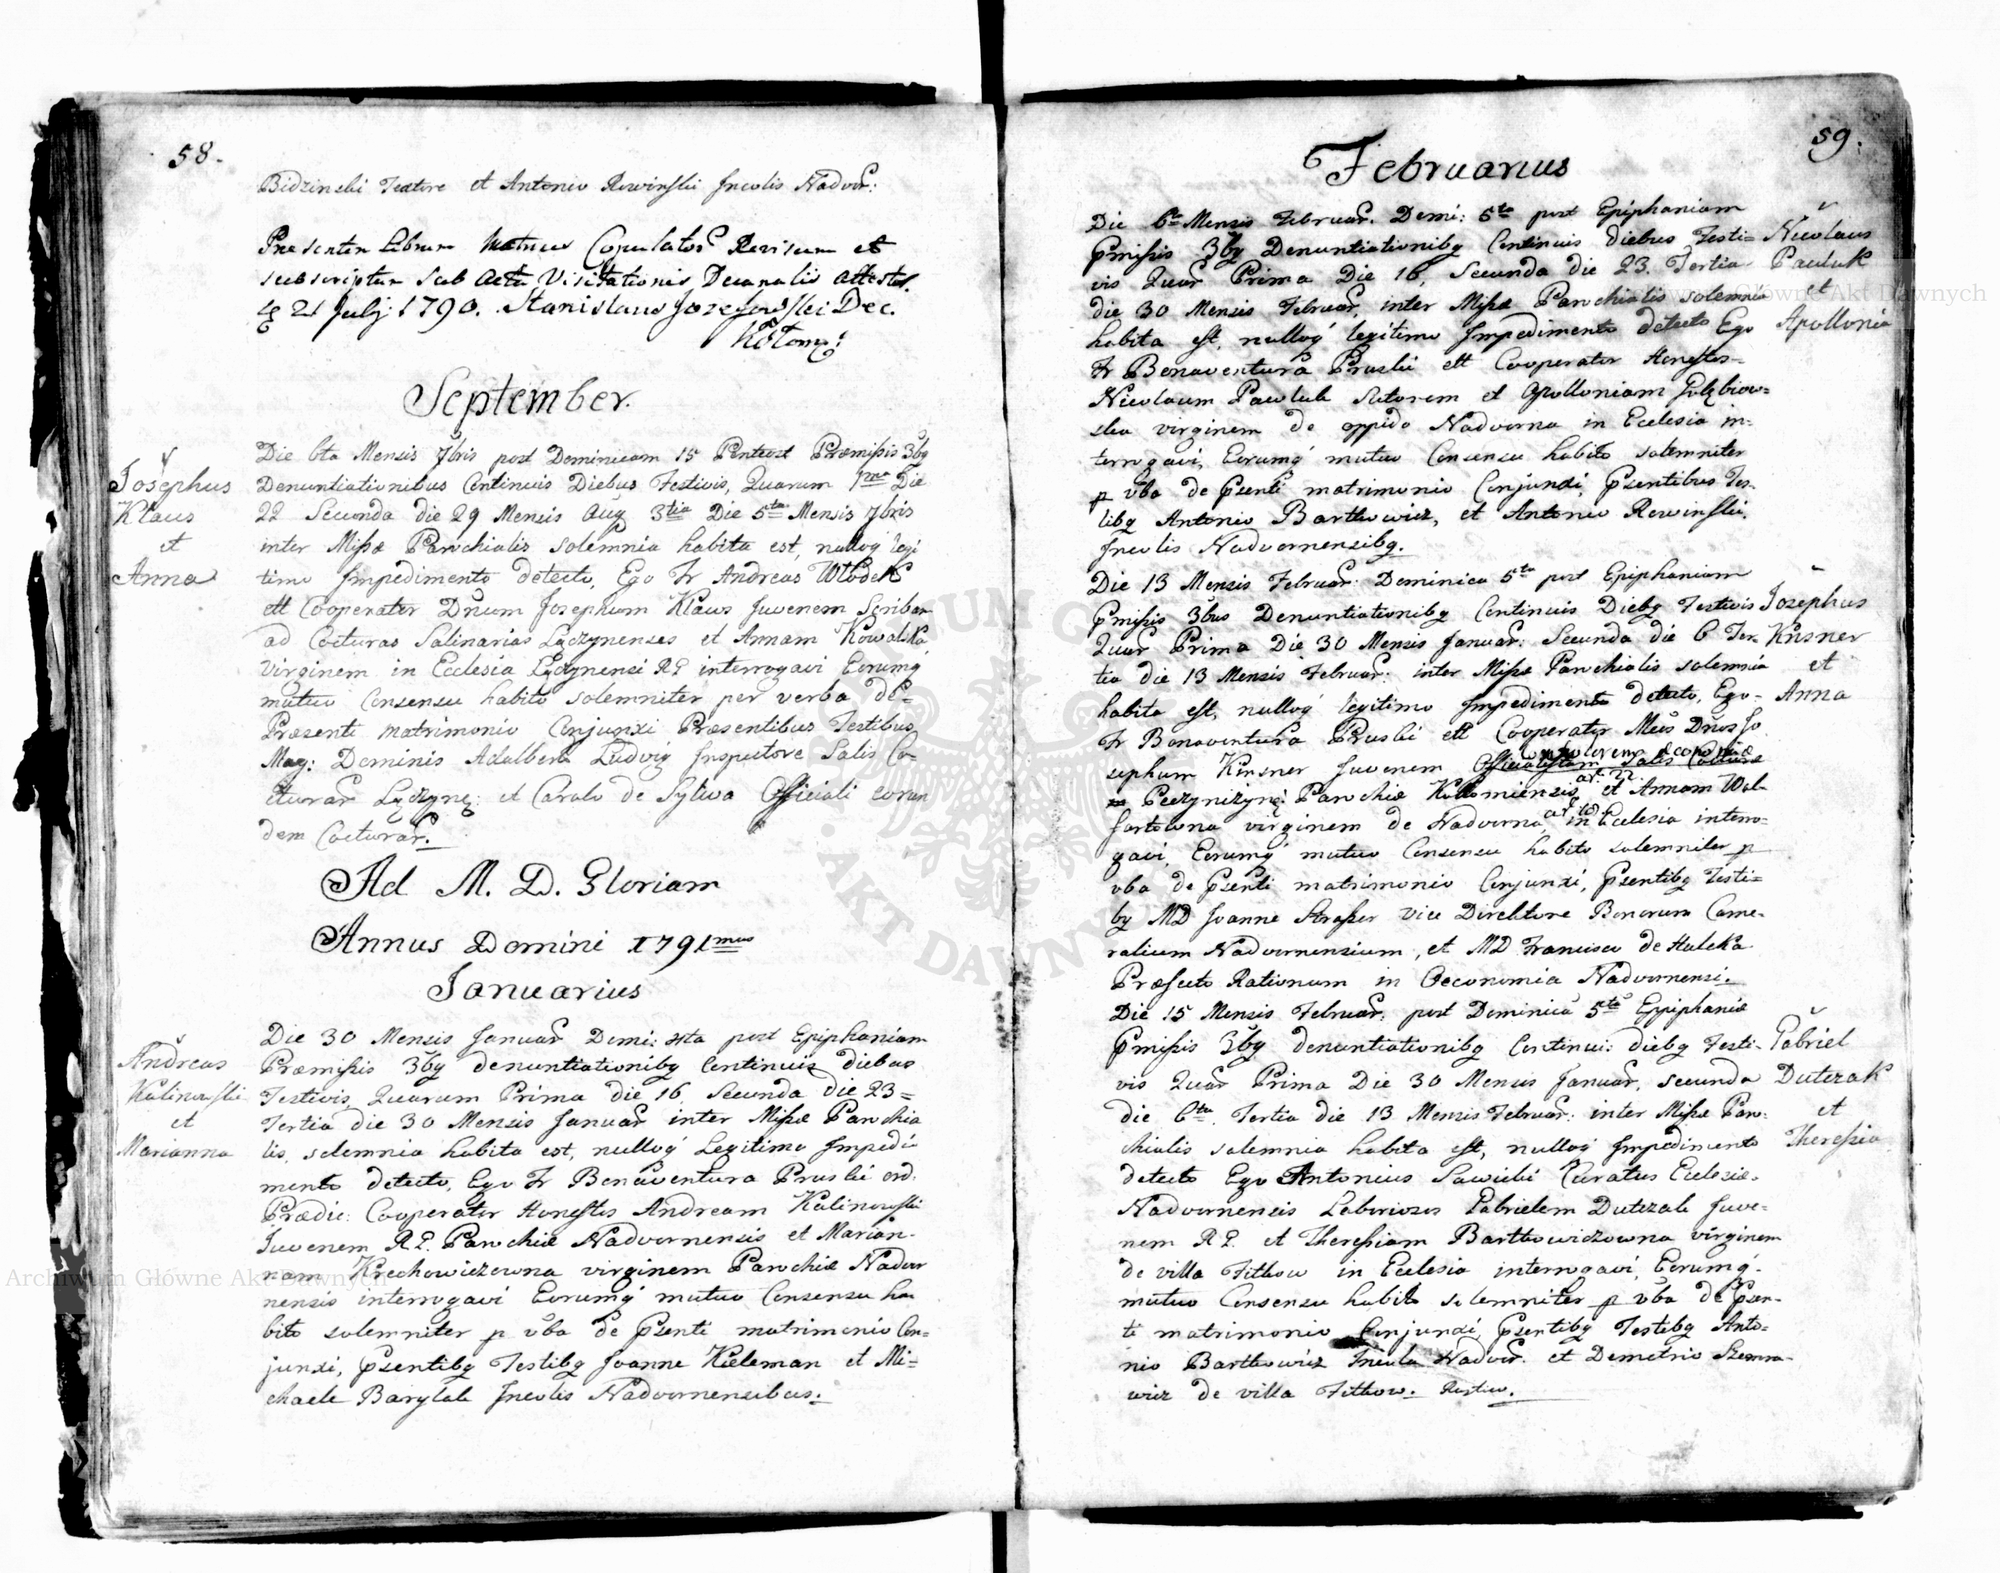 58.
Bidzinski Textore et Antonio Rewinski Incolis Nadvor:
Praesentem Librum Metrices Copulator Revisum et
subscriptum Sub Actu Visitationis Decanalis attestor
21 Julij 1790. Stanislaus Jozefowski Dec.
Kołom:
September.
Josephus
Klaus
et
Anna
Die 6ta Mensis 7bris post Dominicam 15 Pentecost Præmissis 3bq
Denuntiationibus Continuis Diebus Festivis, Quarum 1ma Die
22 Secunda die 29 Mensis Aug 3tia Die 5ta Mensis 7bris
inter Missæ Parochialis solemnia habita est, nulloq legi
timo Impedimento detecto, Ego Fr Andreas Włodek
ett Cooperator Dnum Josephum Klaus Juvenem Scribam
ad Cocturas Salinarias Łączynenses et Annam Kowalska
Virginem in Ecclesia Łączynensi RL interrogavi Eorumq
mutuo Consensu habito solemniter per verba de=
Præsenti matrimonio Conjunxi Præsentibus Testibus
Mag: Dominis Adalberto Ludvig Inspectore Salis Co-
cturar Łączyn: et Carolo de Sylwa Officiali eorun
dem Cocturar.
Ad M. D. Gloriam
Annus Domini 1791mus
Januarius
Andreas
Kalinowski
et
Marianna
Die 30 Mensis Januar Domi: 4ta post Epiphaniam
Præmissis 3bq denuntiationibq Continuis diebus
Festivis, Quarum Prima die 16, Secunda die 23=
Tertia die 30 Mensis Januar inter Missæ Parochia
lis, solemnia habita est, nulloq Legitimo Impedi
mento detecto, Ego Fr Benaventura Pruski ord:
Prædic: Cooperator Honestos Andream Kalinowski
Juvenem RL. Parochiæ Nadvornensis et Marian-
nam Krechowiczowna virginem Parochiæ Nadvor
nensis interrogavi Eorumq mutuo Consensu ha
bito solemniter p vba de Psenti matrimonio Con=
junxi, Psentibq Testibq Joanne Kieleman et Mi=
chaele Barylak Incolis Nadvornensibus.
59.
Februarius
Die 6ta Mensis Februar. Domi: 5ta post Epiphaniam
Pmissis 3bq Denuntiationibq Continuis diebus Festi=
vis Quar Prima Die 16, Secunda die 23. Tertia
die 30 Mensis Februar, inter Missæ Parochialis solemnia
habita est, nulloq legitimo Impedimento detecto Ego
Fr Benaventura Pruski ett Cooperator Honestos=
Nicolaum Pawluk Sutorem et Apolloniam Gołębiow=
ska virginem de oppido Nadvorna in Ecclesia in-
terrogavi, Eorumq mutuo Consensu habito solemniter
p vba de Psenti matrimonio Conjunxi, Psentibus Tes-
tibq Antonio Bartkowicz, et Antonio Rewinski.
Incolis Nadvornensibq.
Nicolaus
Pauluk
et
Apollonia
Die 13 Mensis Februar: Dominica 5ta post Epiphaniam
Pmissis 3bus Denuntiationibq Continuis Diebq Festivis
Quar Prima Die 30 Mensis Januar: Secunda die 6 Ter
tia die 13 Mensis Februar: inter Missæ Parochialis solemnia
habita est, nulloq legitimo Impedimento detecto, Ego-
Fr Benaventura Pruski ett Cooperator Dnos Jo
sephum Kirsner Juvenem Officialistam Salis Cocturæ
Peczynizynę: Parochiæ Kołomiensis et Annam Wol-
fartowna virginem de Nadvorna in Ecclesia interro-
gavi, Eorumq mutuo Consensu habito solemniter p
vba de Psenti matrimonio Conjunxi, Psentibq Testi=
bq MD Joanne Strasser vice Direktore Bonorum Came-
ralium Nadvornensium, et MD Francisco de Huleka
Præfecto Rationum in Oeconomia Nadvornensi.
Josephus
Kirsner
et
Anna
Die 15 Mensis Februar: post Dominica 5ta Epiphaniæ
Pmissis 3bq denuntiationibq Continui: diebq Festi-
vis Quar Prima Die 30 Mensis Januar, secunda
die 6ta. Tertia die 13 Mensis Februar: inter Missæ Paro-
chialis solemnia habita est, nulloq Impedimento
detecto Ego Antonius Sawicki Curatus Ecclesiæ-
Nadvornensis Laboriosos Gabrielem Dutczak Juve-
nem RL. et Theressiam Bartkowiczowna virginem
de villa Fitkow in Ecclesia interrogavi, Eorumq-
mutuo Consensu habito solemniter p vba de Psen-
ti matrimonio Conjunxi, Psentibq Testibq Anto=
nio Bartkowicz Incola Nadvor. et Demetrio Szemra-
wicz de villa Fitkow. Rustico.
Gabriel
Dutczak
et
Theressia
Archiwum Główne Akt Dawnych
Archiwum Główne Akt Dawnych